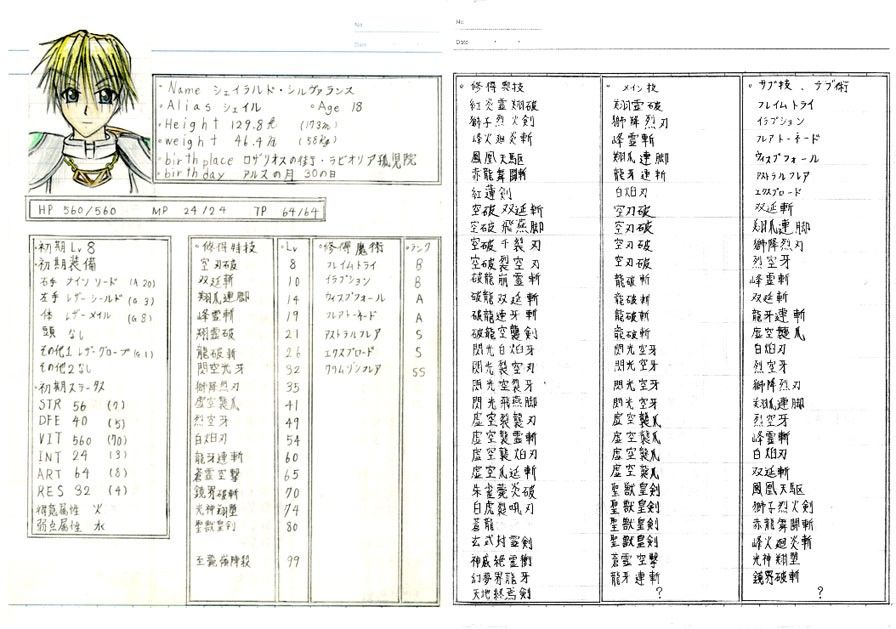 No.
Date
・Name シェイラルド・シルヴァランス
・Alias シェイル ・Age 18
・Height 129.8 (173cm)
・weight 46.4 (58kg)
・birthplace ロザリオスの街・ラビオリア孤児院
・birthday アルスの月 30の日
HP 560/560 MP 24/24 TP 64/64
・初期Lv 8
・初期装備
右手 ナイツソード (A20)
左手 レザーシールド (G3)
体 レザーメイル (G8)
頭 なし
その他1 レザーグローブ (G1)
その他2 なし
・初期ステータス
STR 56 (7)
DFE 40 (5)
VIT 560 (70)
INT 24 (3)
ART 64 (8)
RES 32 (4)
得意属性 火
弱点属性 水
・修得特技 ・Lv
空刃破 8
双延斬 10
翔爪連脚 14
峰霊斬 19
翔霊破 21
龍破斬 26
閃空光牙 32
獅降烈刃 35
虚空襲爪 41
烈空牙 49
白焔刃 54
龍牙連斬 60
蒼霊空撃 65
鏡界破斬 70
光神翔塁 74
聖獣皇剣 80
99
・修得魔術 ・ランク
フレイムトライ B
イラプション B
ウィスプフォール A
フレアトネード A
アストラルフレア S
エクスプロード S
クリムゾンフレア SS
No.
Date
・修得奥技 ・メイン技 ・サブ技、サブ術
紅炎霊翔破 翔霊破 フレイムトライ
獅子烈火剣 獅降烈刃 イラプション
峰火廻炎斬 峰霊斬 フレアトネード
鳳凰天駆 翔爪連脚 ウィスプフォール
赤龍舞闘斬 龍牙連斬 アストラルフレア
紅蓮剣 白焔刃 エクスプロード
空破双延斬 空刃破 双延斬
空破飛燕脚 空刃破 翔爪連脚
空破千裂刃 空刃破 獅降烈刃
空破裂空刃 空刃破 烈空牙
破龍崩霊斬 龍破斬 峰霊斬
破龍双延斬 龍破斬 双延斬
破龍連牙斬 龍破斬 龍牙連斬
破龍空襲剣 龍破斬 虚空襲爪
閃光白焔牙 閃光空牙 白焔刃
閃光裂空刃 閃光空牙 烈空牙
閃光空裂牙 閃光空牙 獅降烈刃
閃光飛燕脚 閃光空牙 翔爪連脚
虚空裂襲刃 虚空襲爪 烈空牙
虚空襲霊斬 虚空襲爪 峰霊斬
虚空襲焔白 虚空襲爪 白焔刃
虚空爪延斬 虚空襲爪 双延斬
朱雀焱炎破 聖獣皇剣 鳳凰天駆
白虎裂吼刃 聖獣皇剣 獅子烈火剣
蒼龍 聖獣皇剣 赤龍舞闘斬
玄武封霊剣 聖獣皇剣 峰火廻炎斬
神威絶霊衝 蒼霊空撃 光神翔塁
幻夢界龍牙 龍牙連斬 鏡界破斬
天地終焉剣 ? ?